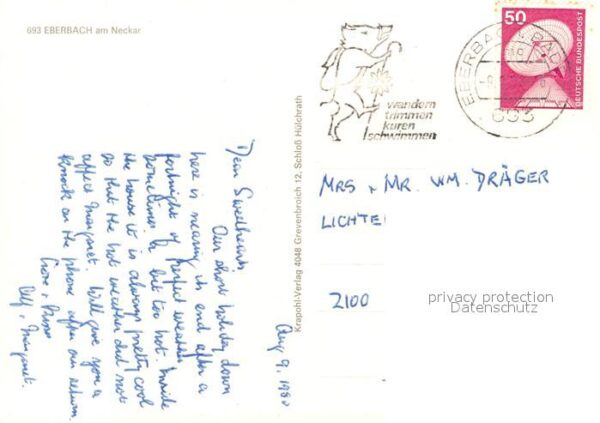 693 EBERBACH am Neckar
50
DEUTSCHE BUNDESPOST
EBERBACH
693
wandern
trimmen
kuren
schwimmen
Krapohl-Verlag 4048 Grevenbroich 12, Schloß Hülchrath
Aug 9. 1980
Dear Sweethearts
Our short holiday down
here is nearing its end after a
fortnight of perfect weather
sometimes a bit too hot. Inside
the house it is always pretty cool
so that the hot weather did not
affect Margaret. Will give you a
knock on the phone after our return.
Love &
Margaret.
MRS + MR. WM. DRÄGER
LICHTE
2100
privacy protection
Datenschutz